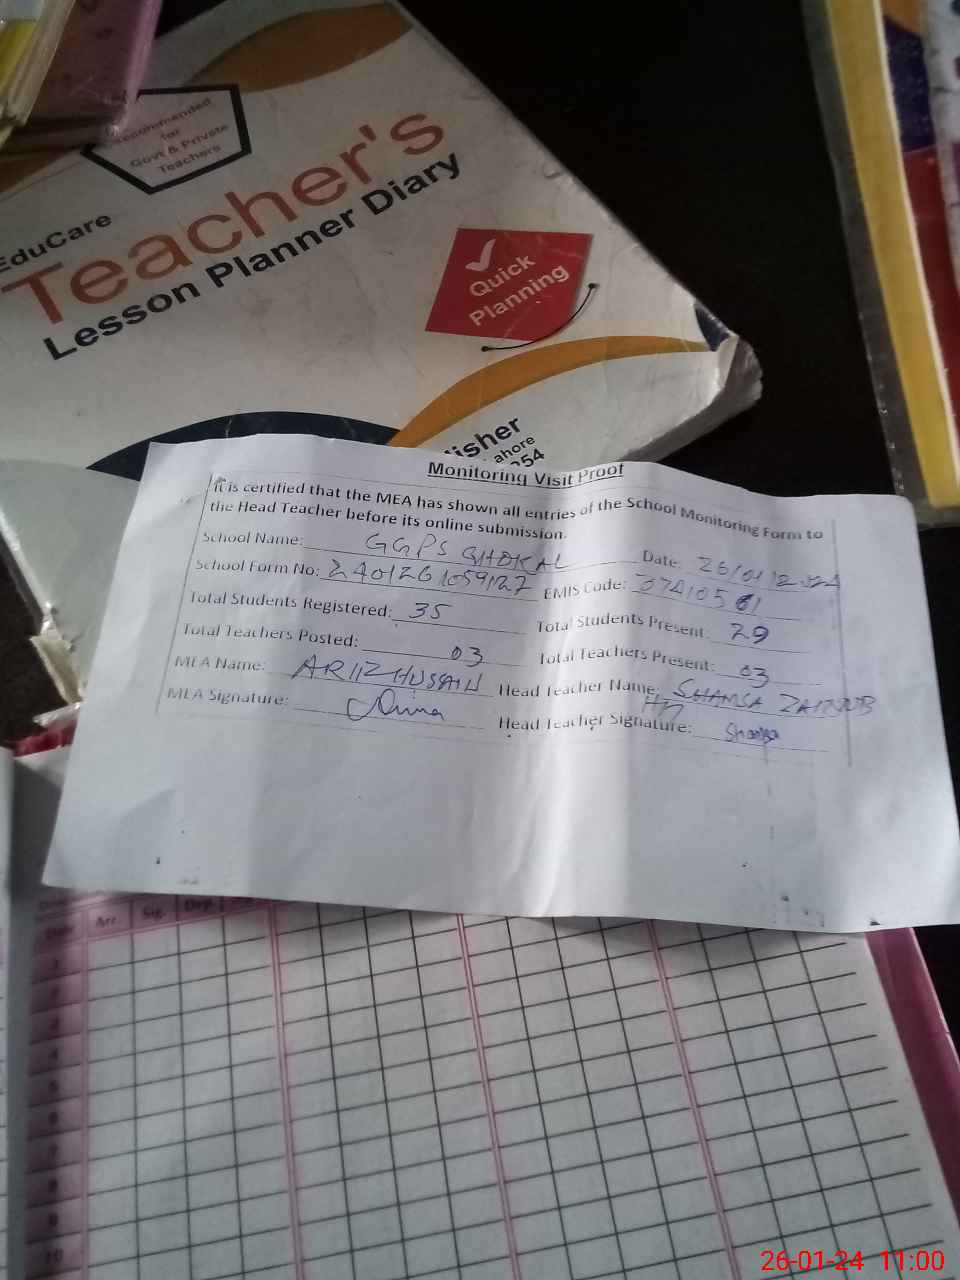 Recommended
for
Govt & Private
Teachers
EduCare
Teacher's
Lesson Planner Diary
Quick
Planning
lisher
ahore
354
Monitoring Visit Proof
It is certified that the MEA has shown all entries of the School Monitoring Form to
the Head Teacher before its online submission.
School Name: GGPS Date: 26/01/2024
School Form No: 2401261059127 EMIS Code:
Total Students Registered: 35 Total Students Present: 29
Total Teachers Posted: 03 Total Teachers Present: 03
MEA Name: HUSSAIN Head Teacher Name: SHAMSA
MEA Signature: Head Teacher Signature:
Arr. Sig. Dep.
1
2
3
4
5
6
7
8
9
10
26-01-24 11:00